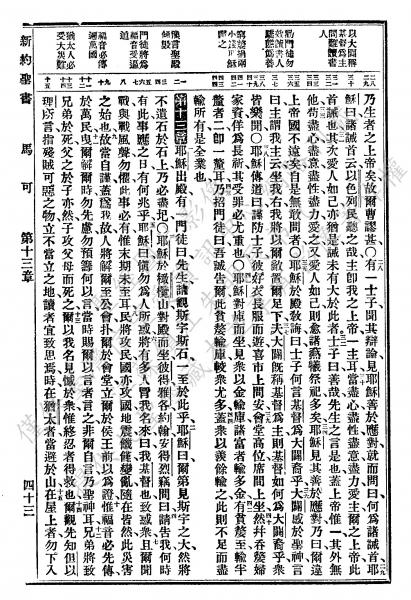 以大闢稱
基督為主
問難讀書
人
乃生者之上帝矣故爾曹謬甚○有一士子聞其辯論見耶穌善於應對就而問曰何為諸誡首耶
穌曰諸誡首云以色列民聽之哉主卽我之上帝一主耳當盡心盡性盡意盡力愛主爾之上帝此
首誡也其次愛人如己亦猶是誡未有大於此者士子曰善哉先生之言是也蓋上帝惟一其外無
他苟盡心盡意盡性盡力愛之又愛人如己則愈諸燔禮祭祀多矣耶穌見其善於應對乃曰爾違
上帝國不遠矣自是無敢問者○耶穌於殿敎誨曰士子何言基督為大闢裔乎大闢感於聖神
曰主謂我主云坐我右我將以爾敵置爾足下夫大闢旣稱基督為主則基督如何為大闢裔乎衆
皆樂聞○耶穌傳道曰謹防士子彼好衣長服而遊喜市上問安會堂高位席間上坐然幷吞嫠婦
家資佯為長祈其受罪必尤重也○耶穌對庫而坐見衆以金輸庫諸富者輸多金有貧嫠至輸半
釐者二卽一釐耳乃招門徒曰吾誠吿爾此貧嫠輸庫較衆尤多蓋衆以羨餘輸之此則不足而盡
輸所有是全業也
預言聖殿
傾毀
第十三章耶穌出殿有一門徒曰先生請觀斯宇斯石一至於此乎耶穌曰爾第見斯宇之大然將
不遺石於石上乃必盡圮○耶穌於橄欖山對殿而坐彼得雅各約翰安得烈竊問曰請吿我何時
門徒將為
福音受逼
有此事應之日有何兆乎耶穌曰愼勿為人所惑將有多人冒我名來曰我基督也致惑衆且爾聞
戰與戰風聲勿懼此事必有惟末期未至耳民將攻民國亦攻國地震饑饉變亂隨在皆然此災害
福音必傳
遍萬國
之始也故當自謹蓋為我故人將解爾至公會扑於會堂立爾於侯王前以為證惟福音必先傳
於萬民曳爾解爾時勿先慮勿預籌何以言當時賜爾以言者言之非爾自言乃聖神耳兄弟將致
猶太人必
受大災難
兄弟於死父之於子亦然子攻父母而死之爾以我名見憾於衆惟終忍者得救也爾觀先知但以
理所言指殘賊可惡之物立不當立之地讀者宜致思焉時在猶太者當避於山在屋上者勿下入
新約聖書　馬可　第十三章　四十三